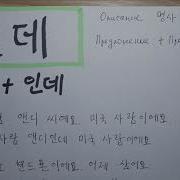 데
Описание 명사
+ 인데
Предложение + Пр
앤디 씨예요. 미국 사람이에요.
사람 앤디인데 미국 사람이에요.
핸드폰이에요. 어제 샀어요.